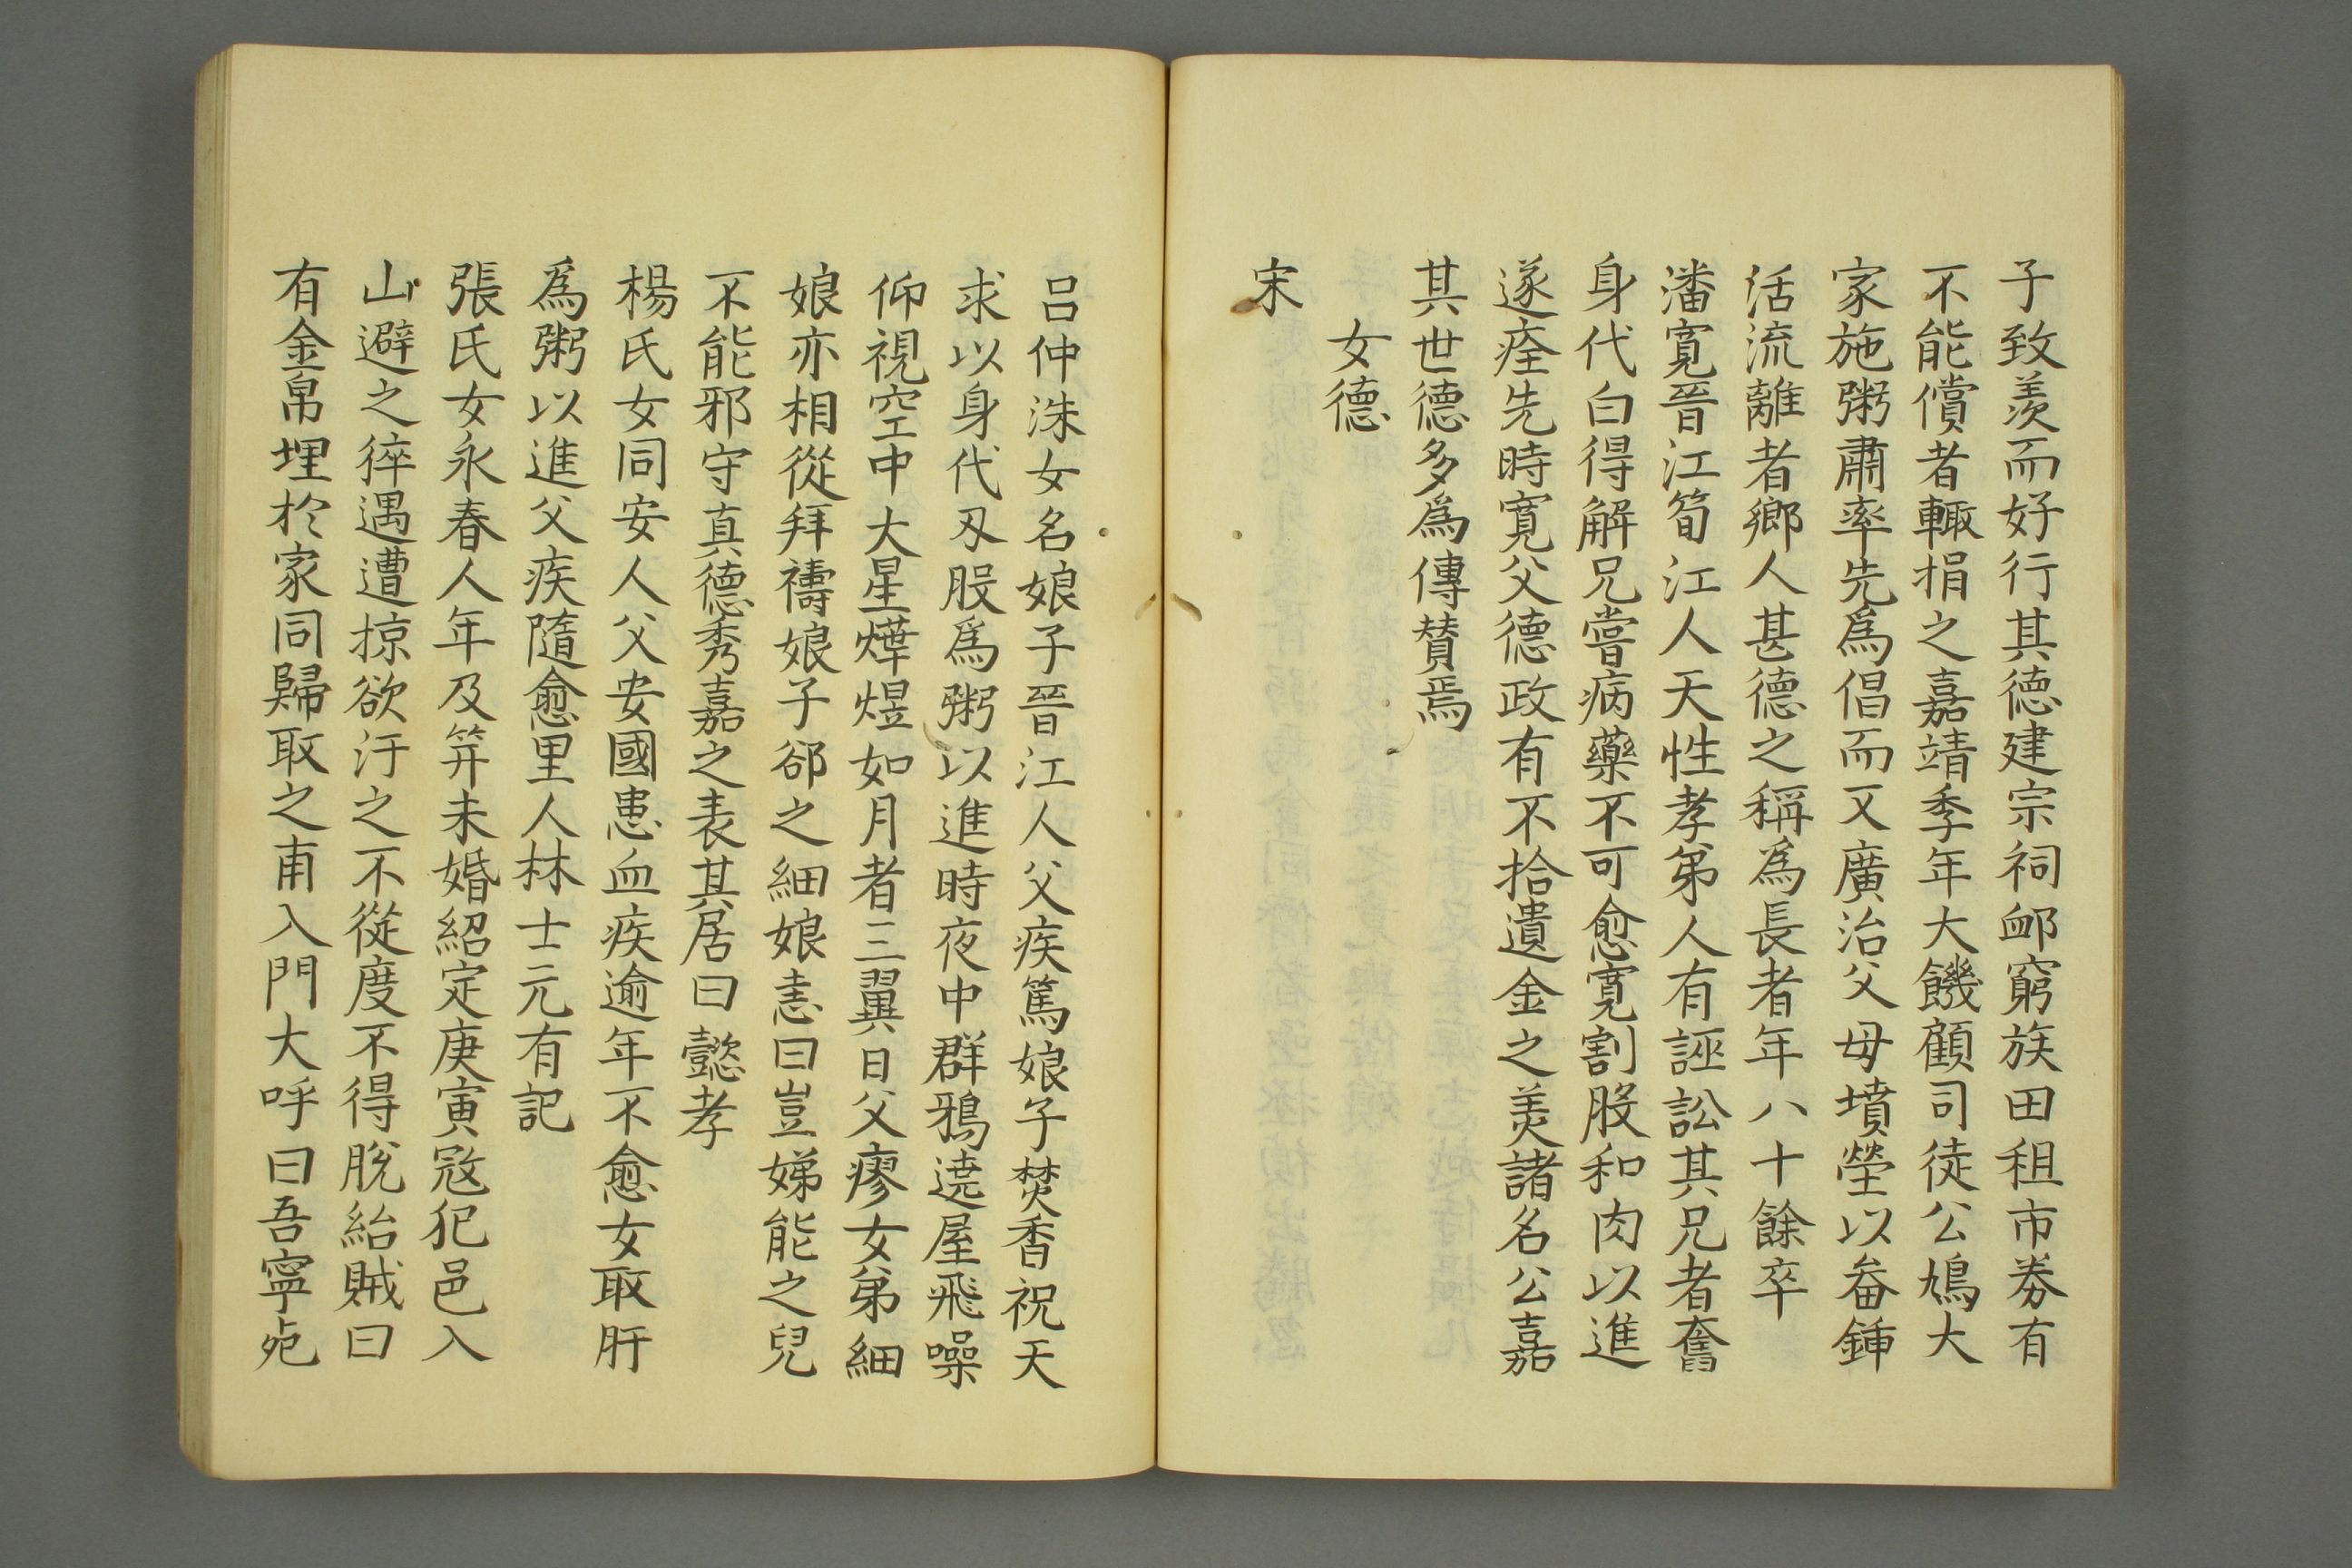 子致羨而好行其德建宗祠䘏窮族田租市券有
不能償者輙捐之嘉靖季年大饑顧司徒公鳩大
家施粥肅率先爲倡而又廣治父母墳塋以畚鍤
活流離者鄉人甚德之稱爲長者年八十餘卒
潘寛晉江筍江人天性孝弟人有誣訟其兄者奮
身代白得解兄嘗病藥不可愈寛割股和肉以進
遂痊先時寛父德政有不拾遺金之美諸名公嘉
其世德多爲傳賛焉
女德
宋
吕仲洙女名娘子晉江人父疾篤娘子焚香祝天
求以身代刄股爲粥以進時夜中群鴉遶屋飛噪
仰視空中大星燁煜如月者三翼日父瘳女弟細
娘亦相從拜禱娘子郤之細娘恚曰豈娣能之兒
不能邪守真德秀嘉之表其居曰懿孝
楊氏女同安人父安國患血疾逾年不愈女取肝
爲粥以進父疾隨愈里人林士元有記
張氏女永春人年及笄未婚紹定庚寅冦犯邑入
山避之猝遇遭掠欲汙之不從度不得脫紿賊曰
有金帛埋於家同歸取之甫入門大呼曰吾寧死